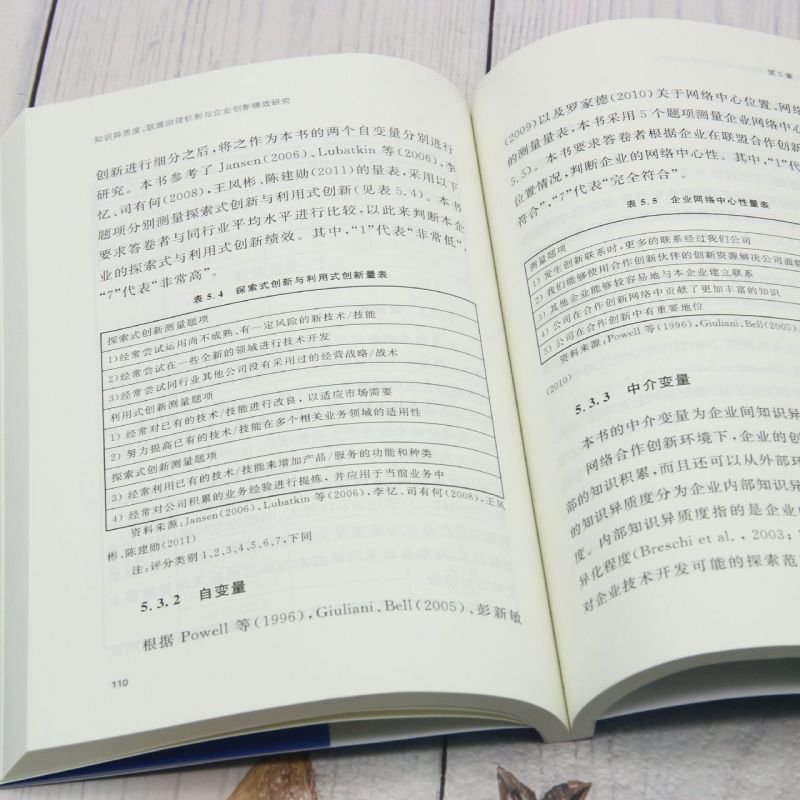 知识异质度、联盟治理机制与企业创新绩效研究
创新进行细分之后,将之作为本书的两个自变量分别进行
研究。本书参考了Jansen(2006)、Lubatkin 等(2006),李
忆、司有何(2008),王凤彬、陈建勋(2011)的量表,采用以下
题项分别测量探索式创新与利用式创新(见表5.4)。本书
要求答卷者与同行业平均水平进行比较,以此来判断本企
业的探索式与利用式创新绩效。其中,“1”代表“非常低”,
“7”代表“非常高”。
表 5.4 探索式创新与利用式创新量表
探索式创新测量题项
1)经常尝试运用尚不成熟、有一定风险的新技术/技能
2)经常尝试在一些全新的领域进行技术开发
3)经常尝试同行业其他公司没有采用过的经营战略/战术
利用式创新测量题项
1) 经常对已有的技术/技能进行改良,以适应市场需要
2) 努力提高已有的技术/技能在多个相关业务领域的适用性
探索式创新测量题项
3) 经常利用已有的技术/技能来增加产品/服务的功能和种类
4) 经常对公司积累的业务经验进行提炼,并应用于当前业务中
资料来源:Jansen(2006)、Lubatkin 等(2006),李忆、司有何(2008),王凤
彬、陈建勋(2011)
注:评分类别 1,2,3,4,5,6,7,下同
5.3.2 自变量
根据 Powell 等(1996),Giuliani、Bell(2005)、彭新敏
110
第5章
(2009)以及罗家德(2010)关于网络中心位置、网络
的测量量表,本书采用 5 个题项测量企业网络中心
5.5)。本书要求答卷者根据企业在联盟合作创新
位置情况,判断企业的网络中心性。其中,“1”代
符合”,“7”代表“完全符合”。
表 5.5 企业网络中心性量表
测量题项
1) 发生创新联系时,更多的联系经过我们公司
2) 我们能够使用合作创新伙伴的创新资源解决公司面临
3) 其他企业能够较容易地与本企业建立联系
4) 公司在合作创新网络中贡献了更加丰富的知识
5) 公司在合作创新中有重要地位
资料来源:Powell 等(1996),Giuliani、Bell(2005)
(2010)
5.3.3 中介变量
本书的中介变量为企业间知识异
网络合作创新环境下,企业的创
部的知识积累,而且还可以从外部环
的知识异质度分为企业内部知识异
度。内部知识异质度指的是企业
异化程度(Breschi et al., 2003;
对企业技术开发可能的探索范